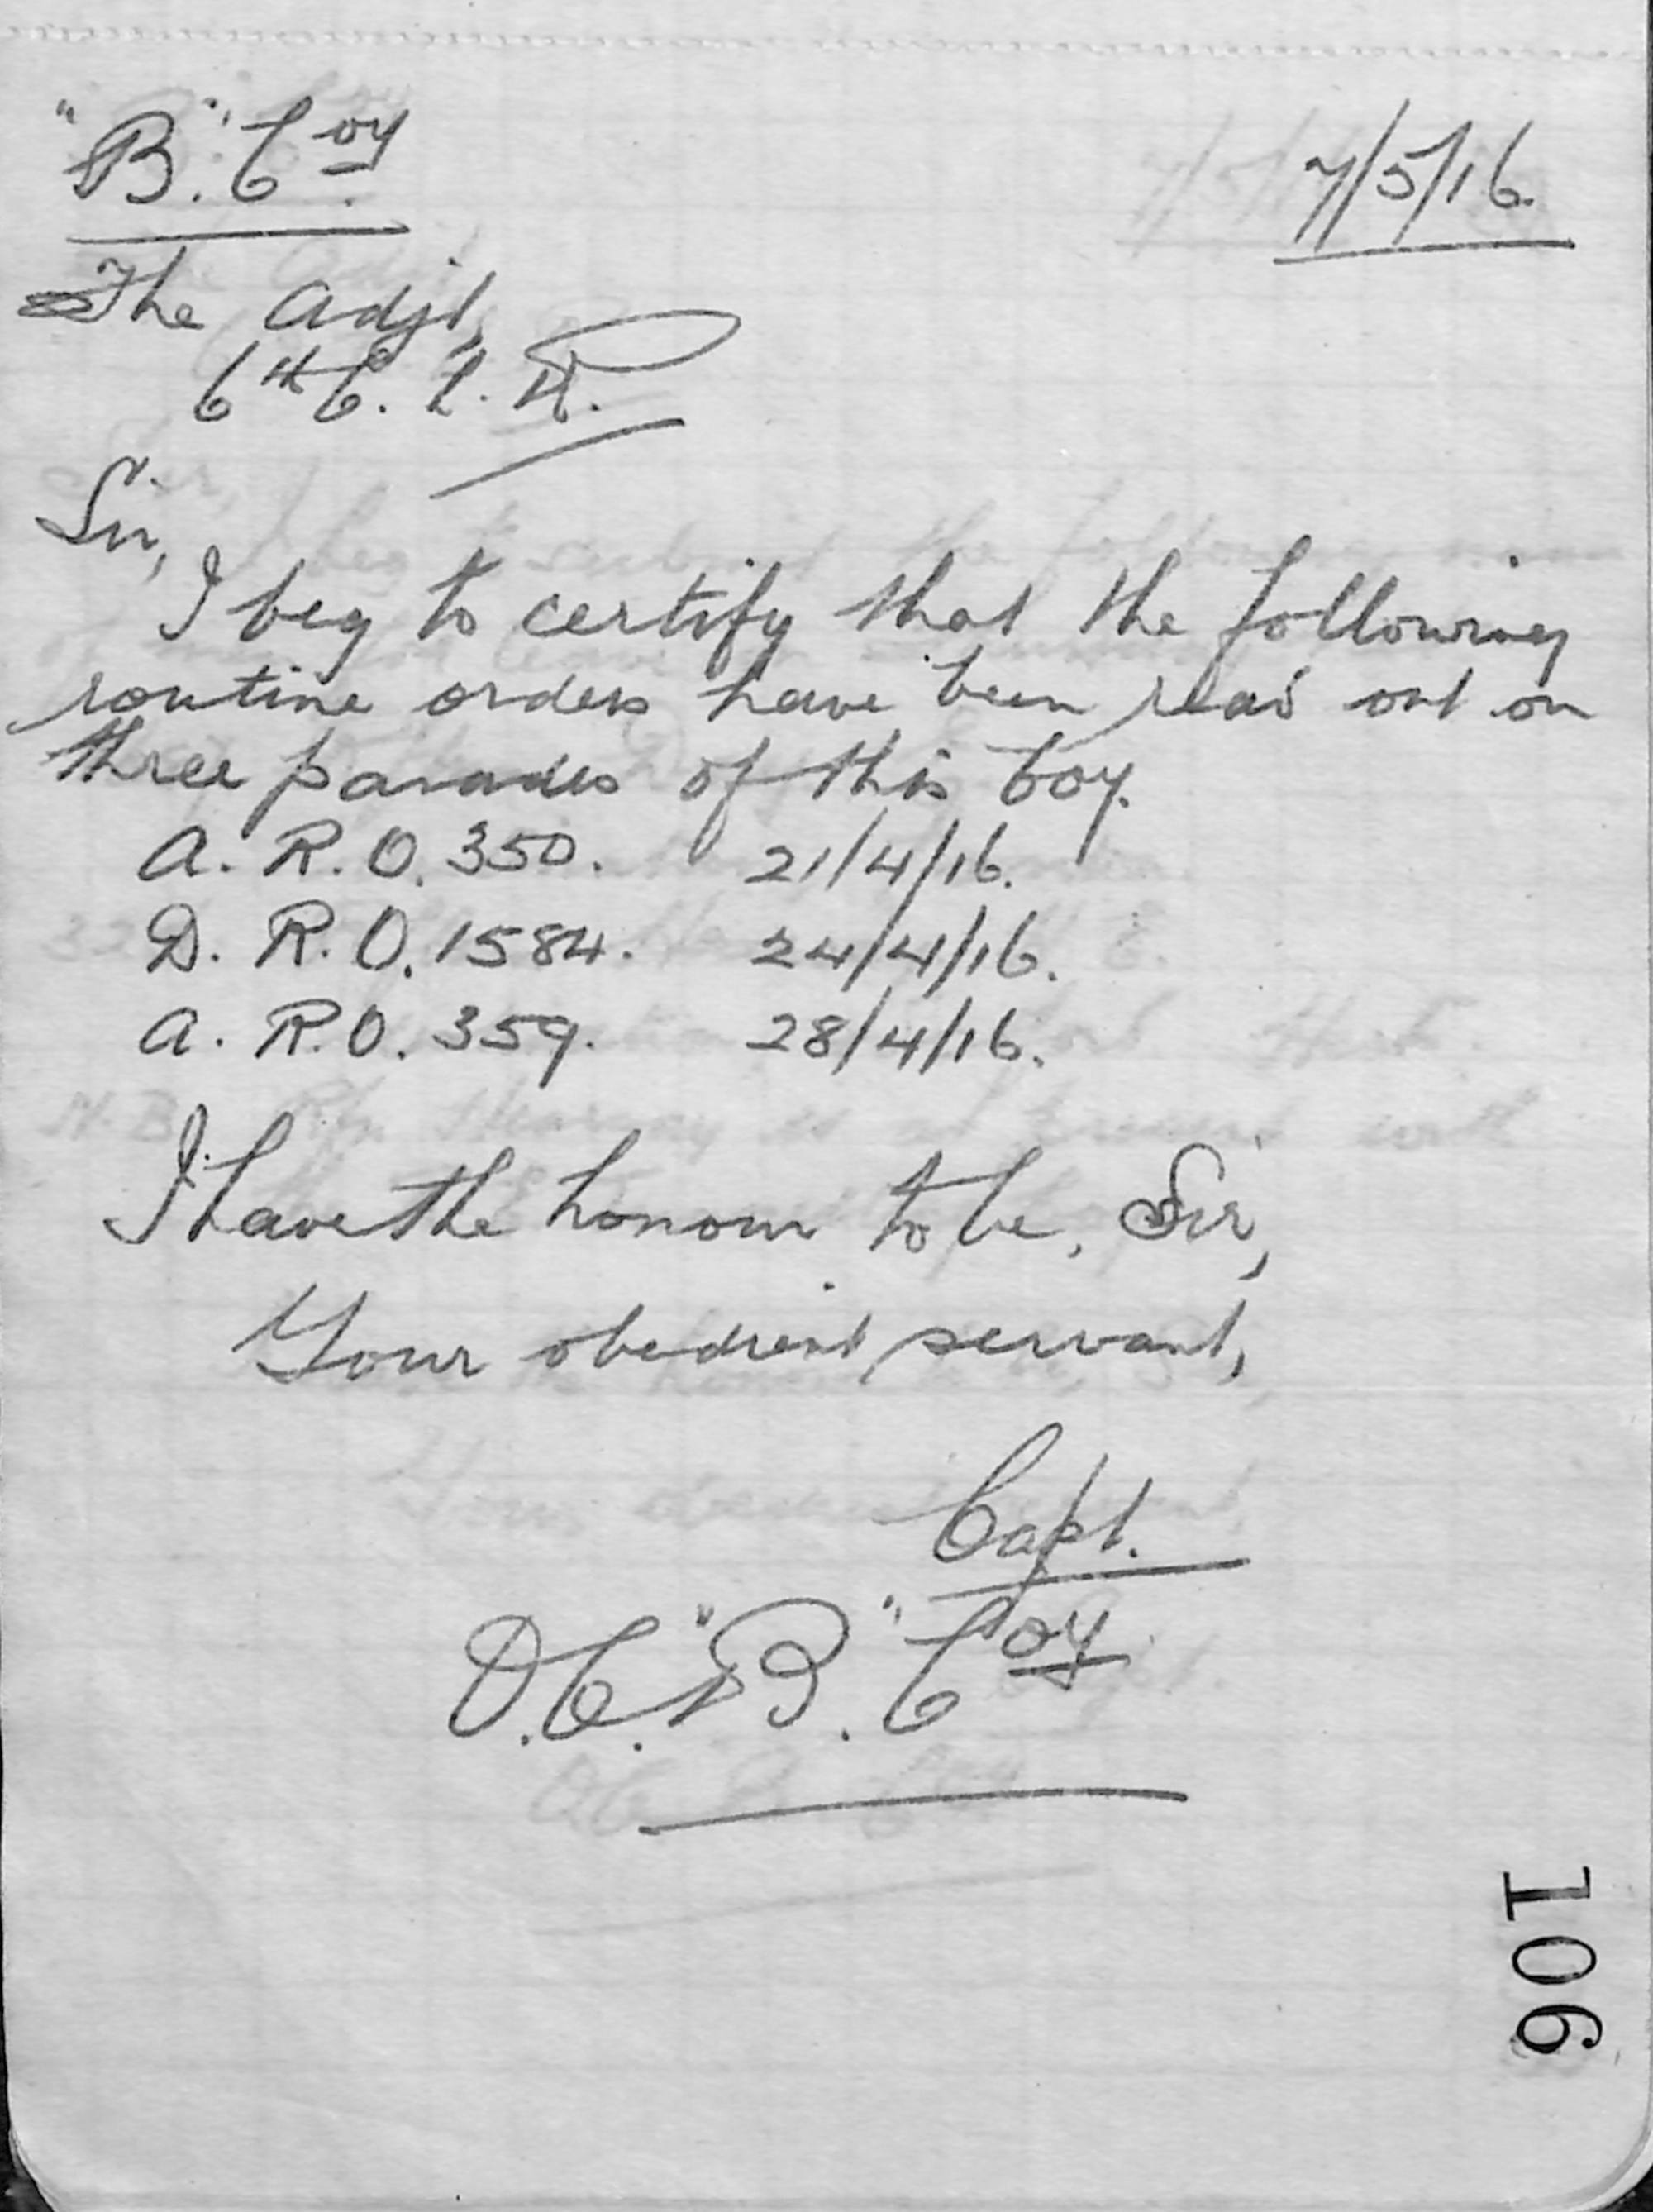 "B". Coy 7/5/16.
The Adjt,
6th C. L. R.
Sir,
I beg to certify that the following
routine orders have been read out on
three parades of this Coy.
A. R. O. 350. 21/4/16.
D. R. O. 1584. 24/4/16.
A. R. O. 359. 28/4/16.
I have the honour to be, Sir,
Your obedient servant,
Capt.
O.C. "B". Coy
106